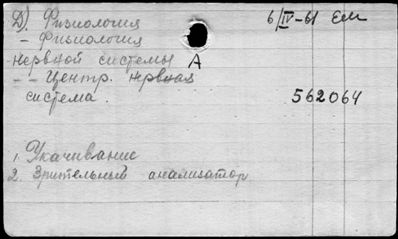 Д) Физиология
6/IV-61 Еш
- Физиология
нервной системы
А
- - Центр. нервная
система.
562064
1. Укачивание
2. Зрительный анализатор